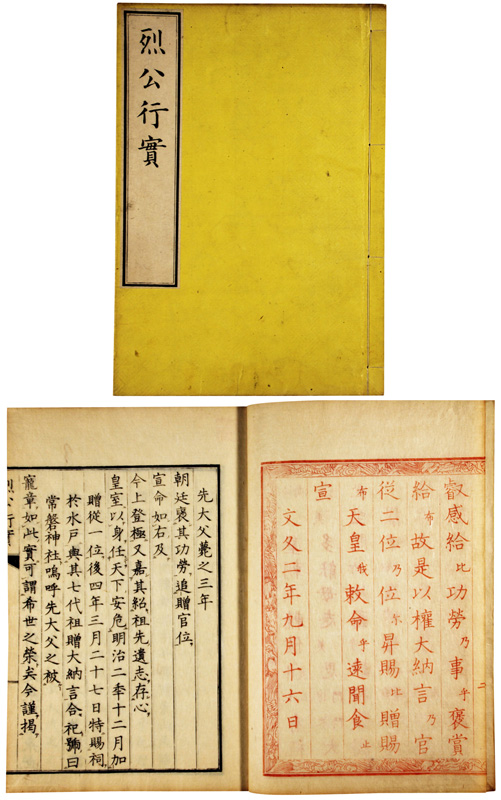 烈公行實
二
叡感給比功勞乃事乎褒賞
給布故是以權大納言乃官
從二位乃位尓昇賜比贈賜
布天皇我敕命乎速聞食止
宣
文久二年九月十六日
先大父薨之三年
朝廷褒其功勞追贈官位
宣命如右及
今上登極又嘉其紹祖先遺志存心
皇室以身任天下安危明治二秊十二月加
贈從一位後四年三月二十七日特賜祠
於水戶與其七代祖贈大納言合祀號曰
常磐神社嗚呼先大父之被
寵章如此實可謂希世之榮矣今謹揭
烈公行實